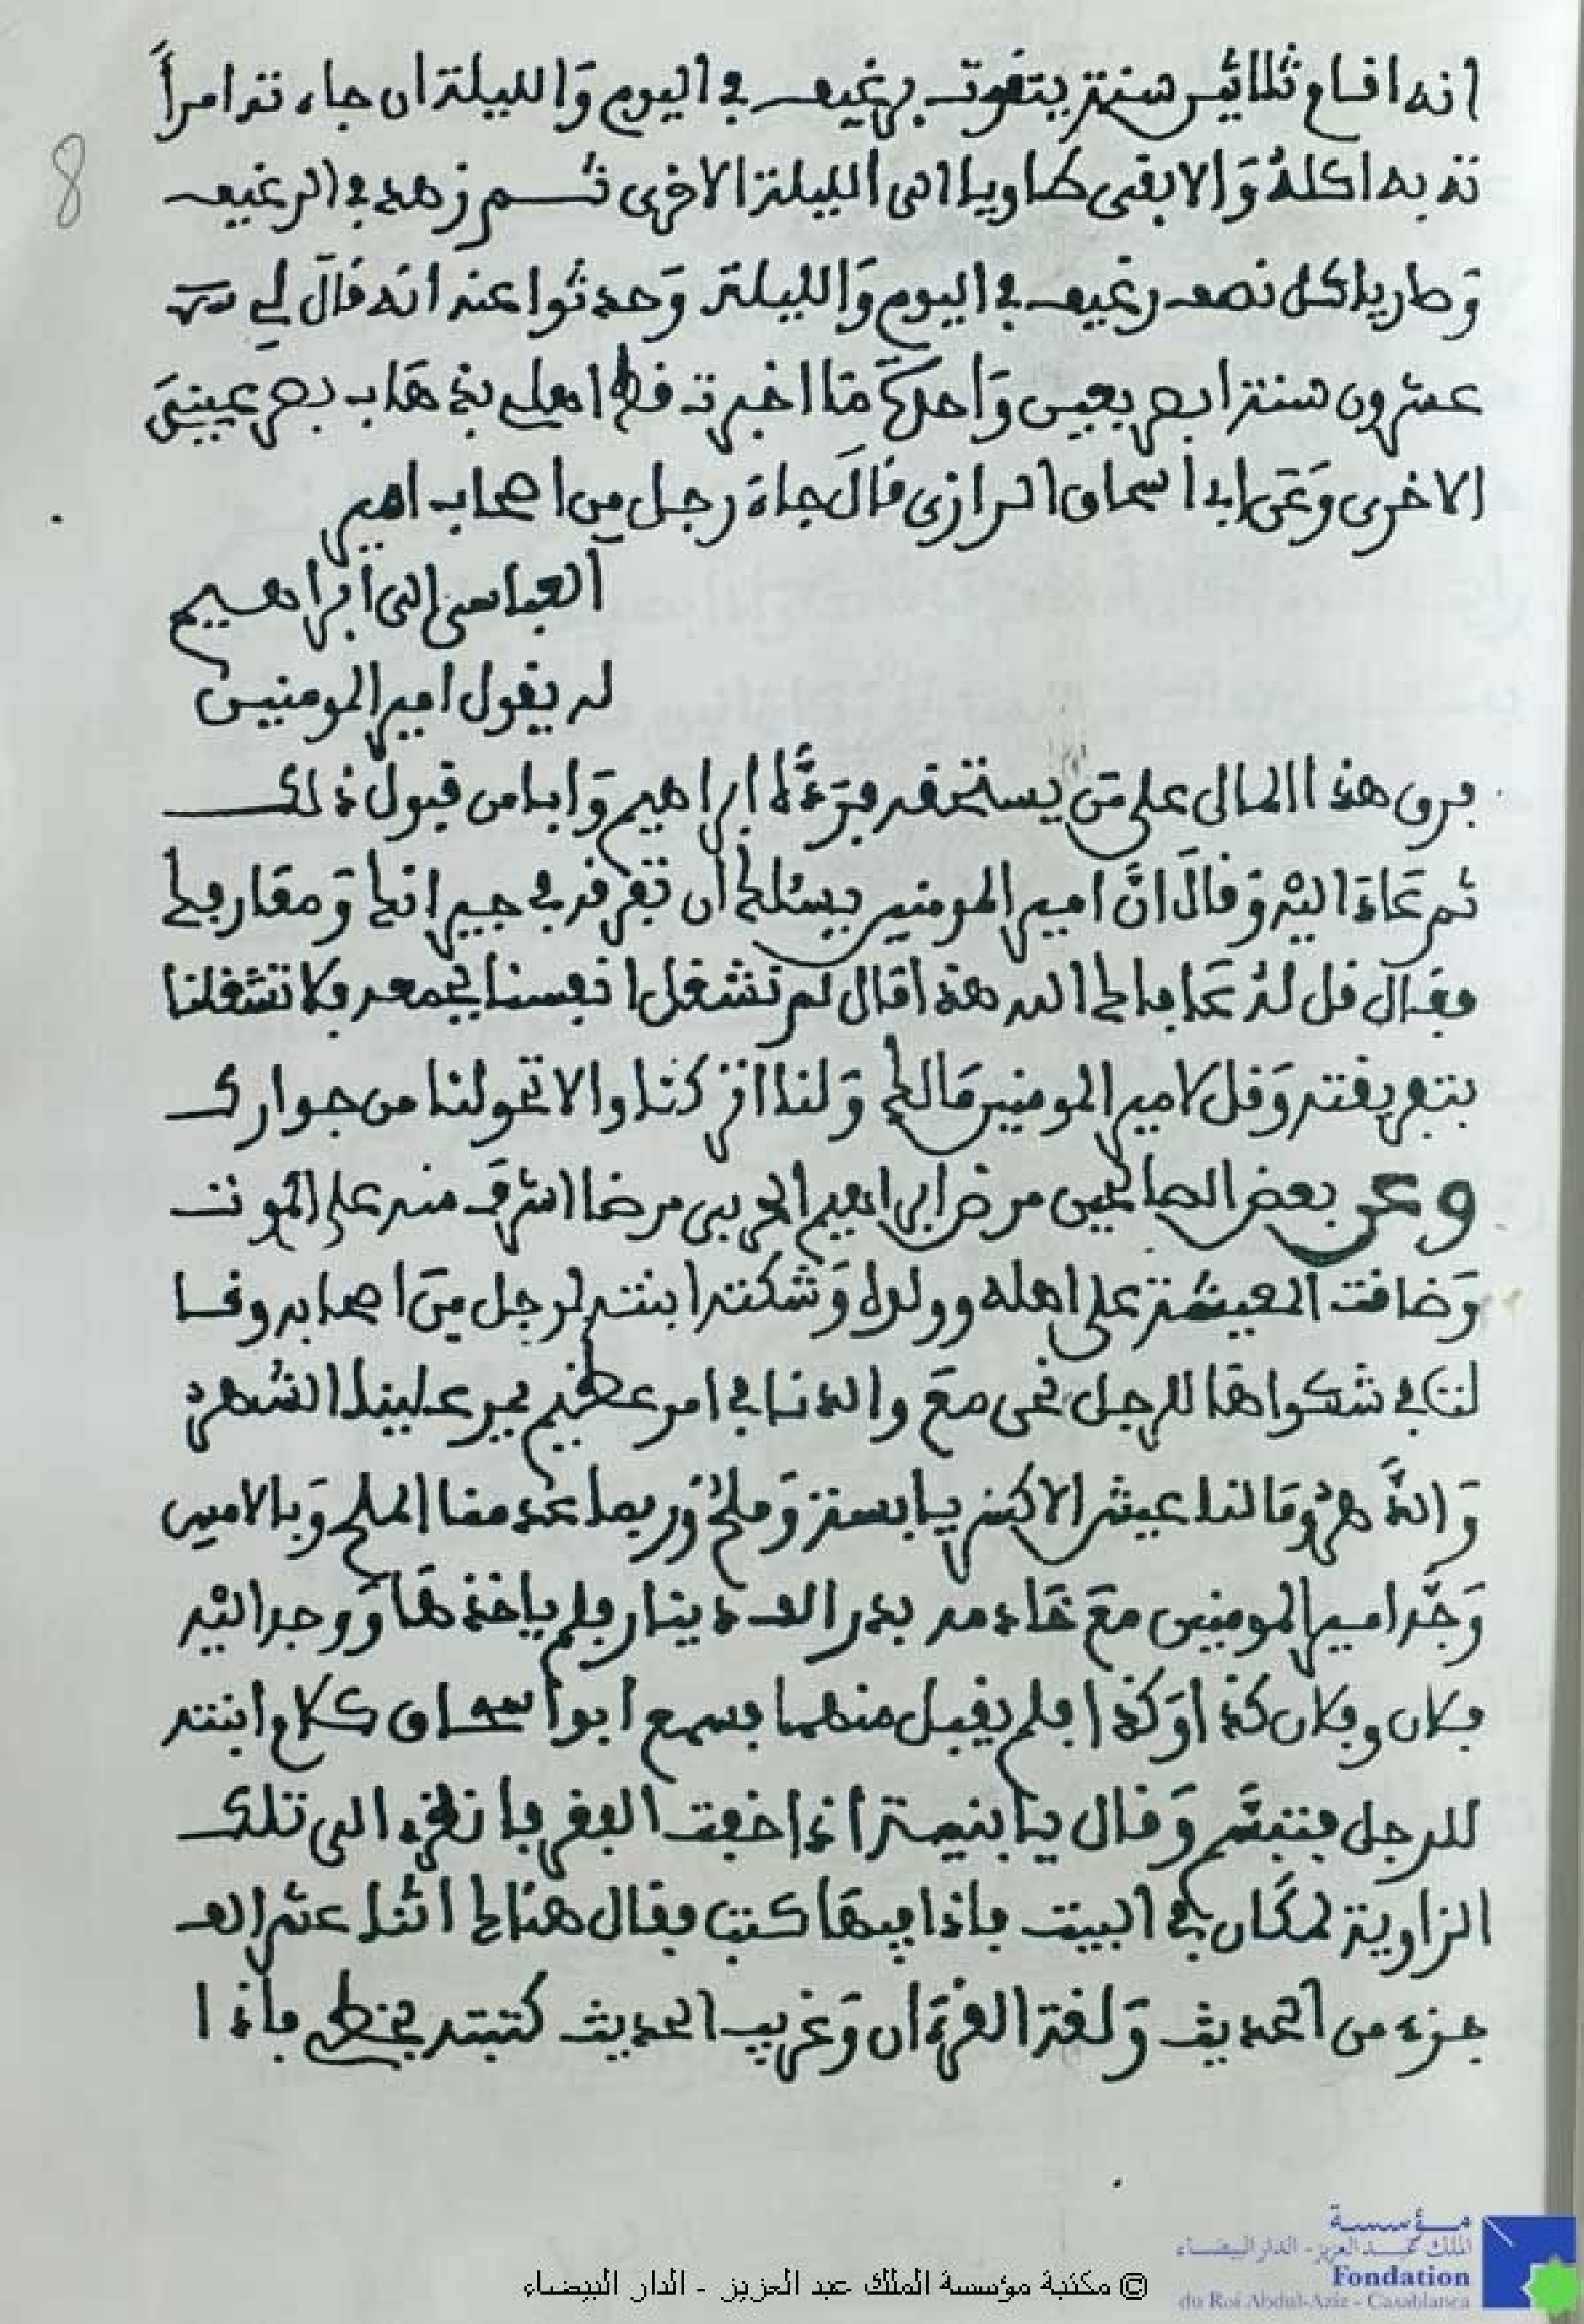 انه اقام ثلاثين سنة يتقوت برغيف في اليوم وَالليلة ان جاءته امرأ
ته به اكله وَالا بقى طاويا الى الليلة الاخرى ثم زهد في الرغيف
وَصار ياكل نصف رغيف في اليوم وَالليلة وَحدثوا عنه انه قالَ لي
عشرون سنة ابصر بعين وَاحدة مَا اخبرت قط اهلي بذهاب بصر عينيَ
الاخرى وَعَن ابي اسحاق الرازي قالَ جاءَ رجل من اصحاب امير
العباسى الى ابراهيم
له يقول امير المومنين
فرق هذا المال على مَن يستحقه فرَدَّهُ ابراهيم وَابا من قبول ذلك
ثم عَادَ اليْه وَقالَ انَّ امير المومنين يسئلك ان تفرقه في جيرانك وَمعارفك
فقال قل لهُ عَافاك الله هذا مال لم نشغل انفسنا بجمعه فلا تشغلنا
بتفريقته وَقل لامير المومنين مَالك وَلنا اتركنا والا تحولنا من جوارك
وعن بعض الصالحين مرض ابراهيم الحربى مرضا اشرفَ منه على الموت
وَضاقت المعيشة على اهله وولده وَشكته ابنته لرجل مِن اصحابه وقا
لت في شكواها للرجل نحن معَ والدنا في امر عظيم يمر علينا الشهر
وَالدَّهرُ وَمَا لنا عيش الا كسر يابسة وَملحُ وَربما عدمنا الملح وَبالامس
وَجَّه امير المومنين معَ خَادمه بدر الف دينار فلم ياخذهَا وَوجه اليْه
فلان وفلان كذا وَكذا فلم يقبل منهما فسمع ابو اسحاق كلام ابنته
للرجل فتبسَّم وَقال يا بنية اذا خفت الفقر فانظرى الى تلك
الزاوية لمكَان في البيت فاذا فيهَا كتب فقال هناك اثنا عشر الف
جزء من الحديث وَلغة القرءَان وَغريب الحديث كتبته بخطى فاذا
8
© مكتبة مؤسسة الملك عبد العزيز - الدار البيضاء
مؤسسة
الملك عبد العزيز - الدار البيضاء
Fondation
du Roi Abdul-Aziz - Casablanca